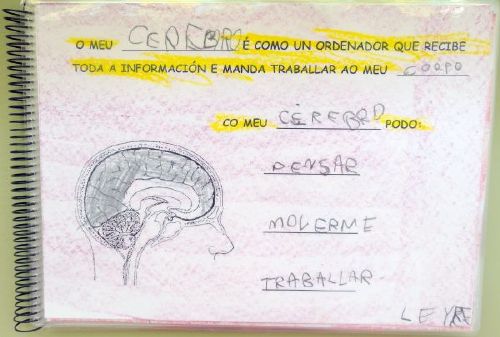 O MEU CEREBRO É COMO UN ORDENADOR QUE RECIBE
TODA A INFORMACIÓN E MANDA TRABALLAR AO MEU CORPO
CO MEU CEREBRO PODO:
PENSAR
MOVERME
TRABALLAR
LEYRE